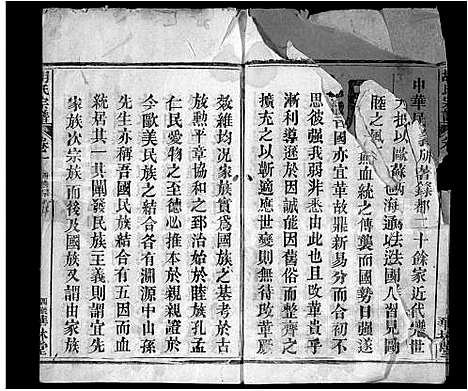 中華民 族著錄都二十餘家近代
大抵以歐蘇 海通 國人
睦之風 無血統之傳襲而國勢日強
國亦宜故鼎新易分而合初不
思彼強我弱非悉由此也且改革貴乎
漸利導必因誠能因舊俗而整齊之
擴充之以蘄適應世變則無待改革
效維均況家族實爲國族之基考於古
放勲平章協和之郅治始於睦族孔孟
仁民愛物之至德必推本於親親證於
今歐美民族之結合各有淵源中山孫
先生亦稱吾國民族結合有五因而血
統居其一其闡發民族主義則謂宜先
家族次宗族而後及國族又謂由家族
胡氏宗譜
卷一
華林堂